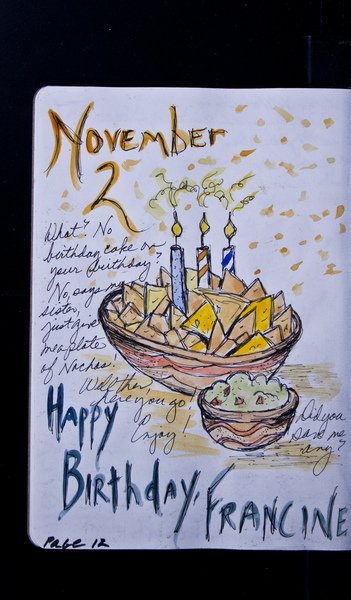 November
2
What? No
birthday cake on
your birthday?
No, says my
sister,
just give
me a plate
of Nachos.
Well then,
here you go!
Enjoy!
Did you
save me
any?
Happy
Birthday,
FRANCINE
PAGE 12